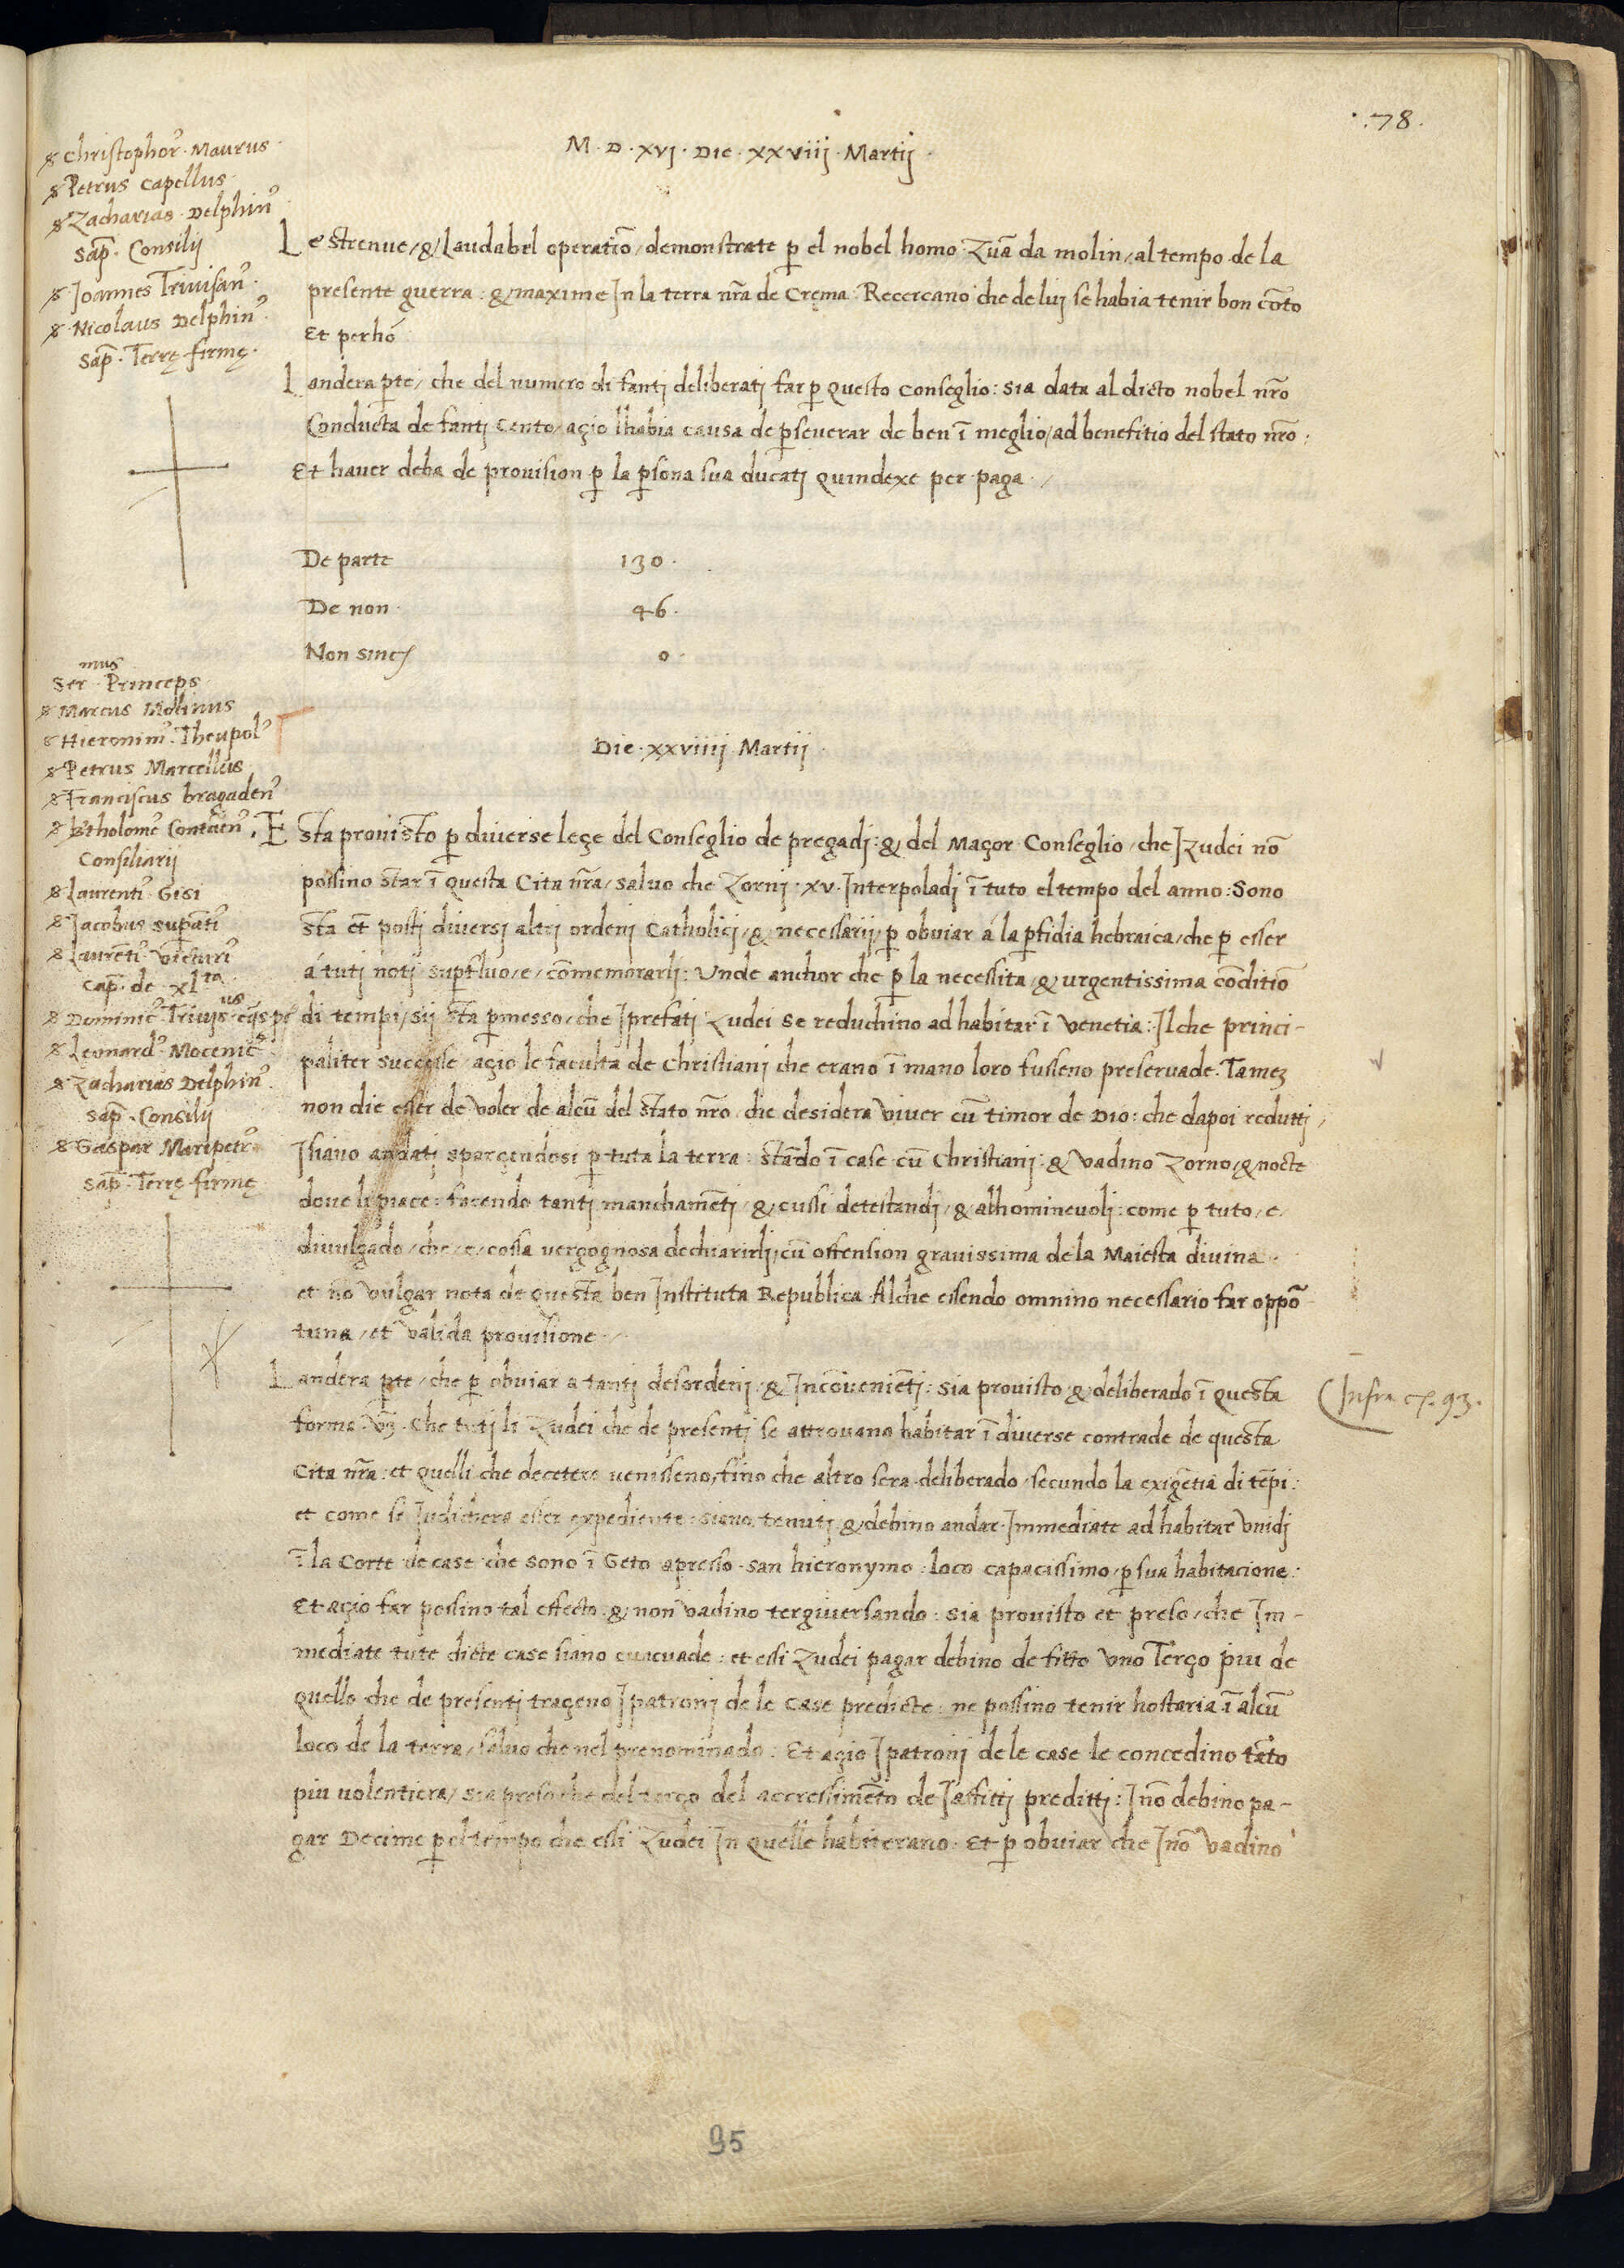 .78.
M · D · XVJ · Die · XXVIIJ · Martij ·
& Christophor9 · Maurus
& Petrus Capellus
& Zacharias · Delphin9
Sap̄ · Consilij
& Joannes Trivisan9
& Nicolaus Delphin9
Sap̄ · Terrę firmę ·
Le strenue / & laudabel operatiō / demonstrate ꝑ el nobel homo Zuā da molin / al tempo de la
presente guerra : & maxime In la terra nr̄a de Crema : Recercano che de luj se habia tenir bon cōto
Et perhó
Landera ꝑte / che del numero di fanti deliberatj far ꝑ questo conseglio : sia data al dicto nobel nr̄o
Conducta de fantj Cento / açio lhabia causa de ꝑseverar de ben ī meglio / ad benefitio del stato nr̄o :
Et haver deba de provision ꝑ la ꝑsona sua ducatj quindexe per paga ·
De parte 130 ·
De non 46 ·
Non sinc 0 ·
Sermus Princeps
& Marcus Molinus
& Hieronim9 Theupol9
& Petrus Marcellus
& Franciscus bragaden9
& Btholome9 Contaen9
Consiliarij
& Laurenti9 Gisi
& Jacobus supāti9
& Laurēti9 victuri9
Cap̄ de xlta
& Dominic9 Trivisus eqs pr
& Leonard9 Mocenic9
& Zacharias Delphin9
Sap̄ · Consilij
& Gaspar Maripetr9
Sap̄ · Terrę firmę
Die · XXVIIIJ Martij
Esta provisto ꝑ diverse leçe del Conseglio de pregadj : & del Maçor Conseglio / che J Zudei nō
possino star ī questa Cita nr̄a / salvo che Zornj · xv · Interpoladj ī tuto el tempo del anno : Sono
sta et̄ posti diversj altri ordenj Catholicj / & necessarij / ꝑ obviar á la ꝑfidia hebraica / che ꝑ esser
á tuti noti suꝑfluo / e / cōmemorarli : Unde anchor che ꝑ la necessita & urgentissima cōditiō
di tempi / sij sta ꝑmesso / che J prefatj Zudei se reduchino ad habitar ī Venetia : Il che princi-
paliter successe / açio le faculta de Christianj che erano ī mano loro fusseno preservade · Tamen
non die esser de voler de alcū del stato nr̄o che desidera viver cū timor de Dio : che dapoi reduttj /
J siano andatj sparçendosi ꝑ tuta la terra : stādo ī case cū Christianj : & vadino Zorno / & nocte
dove li piace : facendo tantj manchamētj / & cussi detestandj / & abhominevoli : come ꝑ tuto / e /
divulgado / che / e / cossa vergognosa dechiarirlj / cū offension gravissima de la Maiesta divina ·
et nō vulgar nota de questa ben Instituta Republica Al che essendo omnino necessario far oppō
tuna / et valida provisione ·
Landera ꝑte / che ꝑ obviar a tantj desordenj & Incōveniētj : sia provisto & deliberado ī questa
forma vz · Che tutj li Zudei che de presentj se attrovano habitar ī diverse contrade de questa
Cita nr̄a : et quelli che decetero venisseno, fino che altro sera deliberado secundo la exigētia di tēpi :
et come se Judichera esser expediente : siano tenutj & debino andar Immediate ad habitar unidj
ī la Corte de case che sono ī Geto apresso san hieronymo : loco capacissimo ꝑ sua habitacione :
Et açio far possino tal effecto & non vadino tergiversando : sia provisto et preso / che Im-
mediate tute dicte case siano evacuade : et essi Zudei pagar debino de fitto uno Terço piu de
quello che de presenti traçeno J patronj de le Case predicte : ne possino tenir hostaria ī alcū
loco de la terra / salvo che nel prenominado : Et açio J patronj de le case le concedino tāto
piu volentiera / sia preso che del terço del accressimēto de J affitti preditti : J nō debino pa-
gar Decime ꝑ el tempo che essi Zudei In quelle habiterano · Et ꝑ obviar che J nō vadino
Infra c. 93.
95